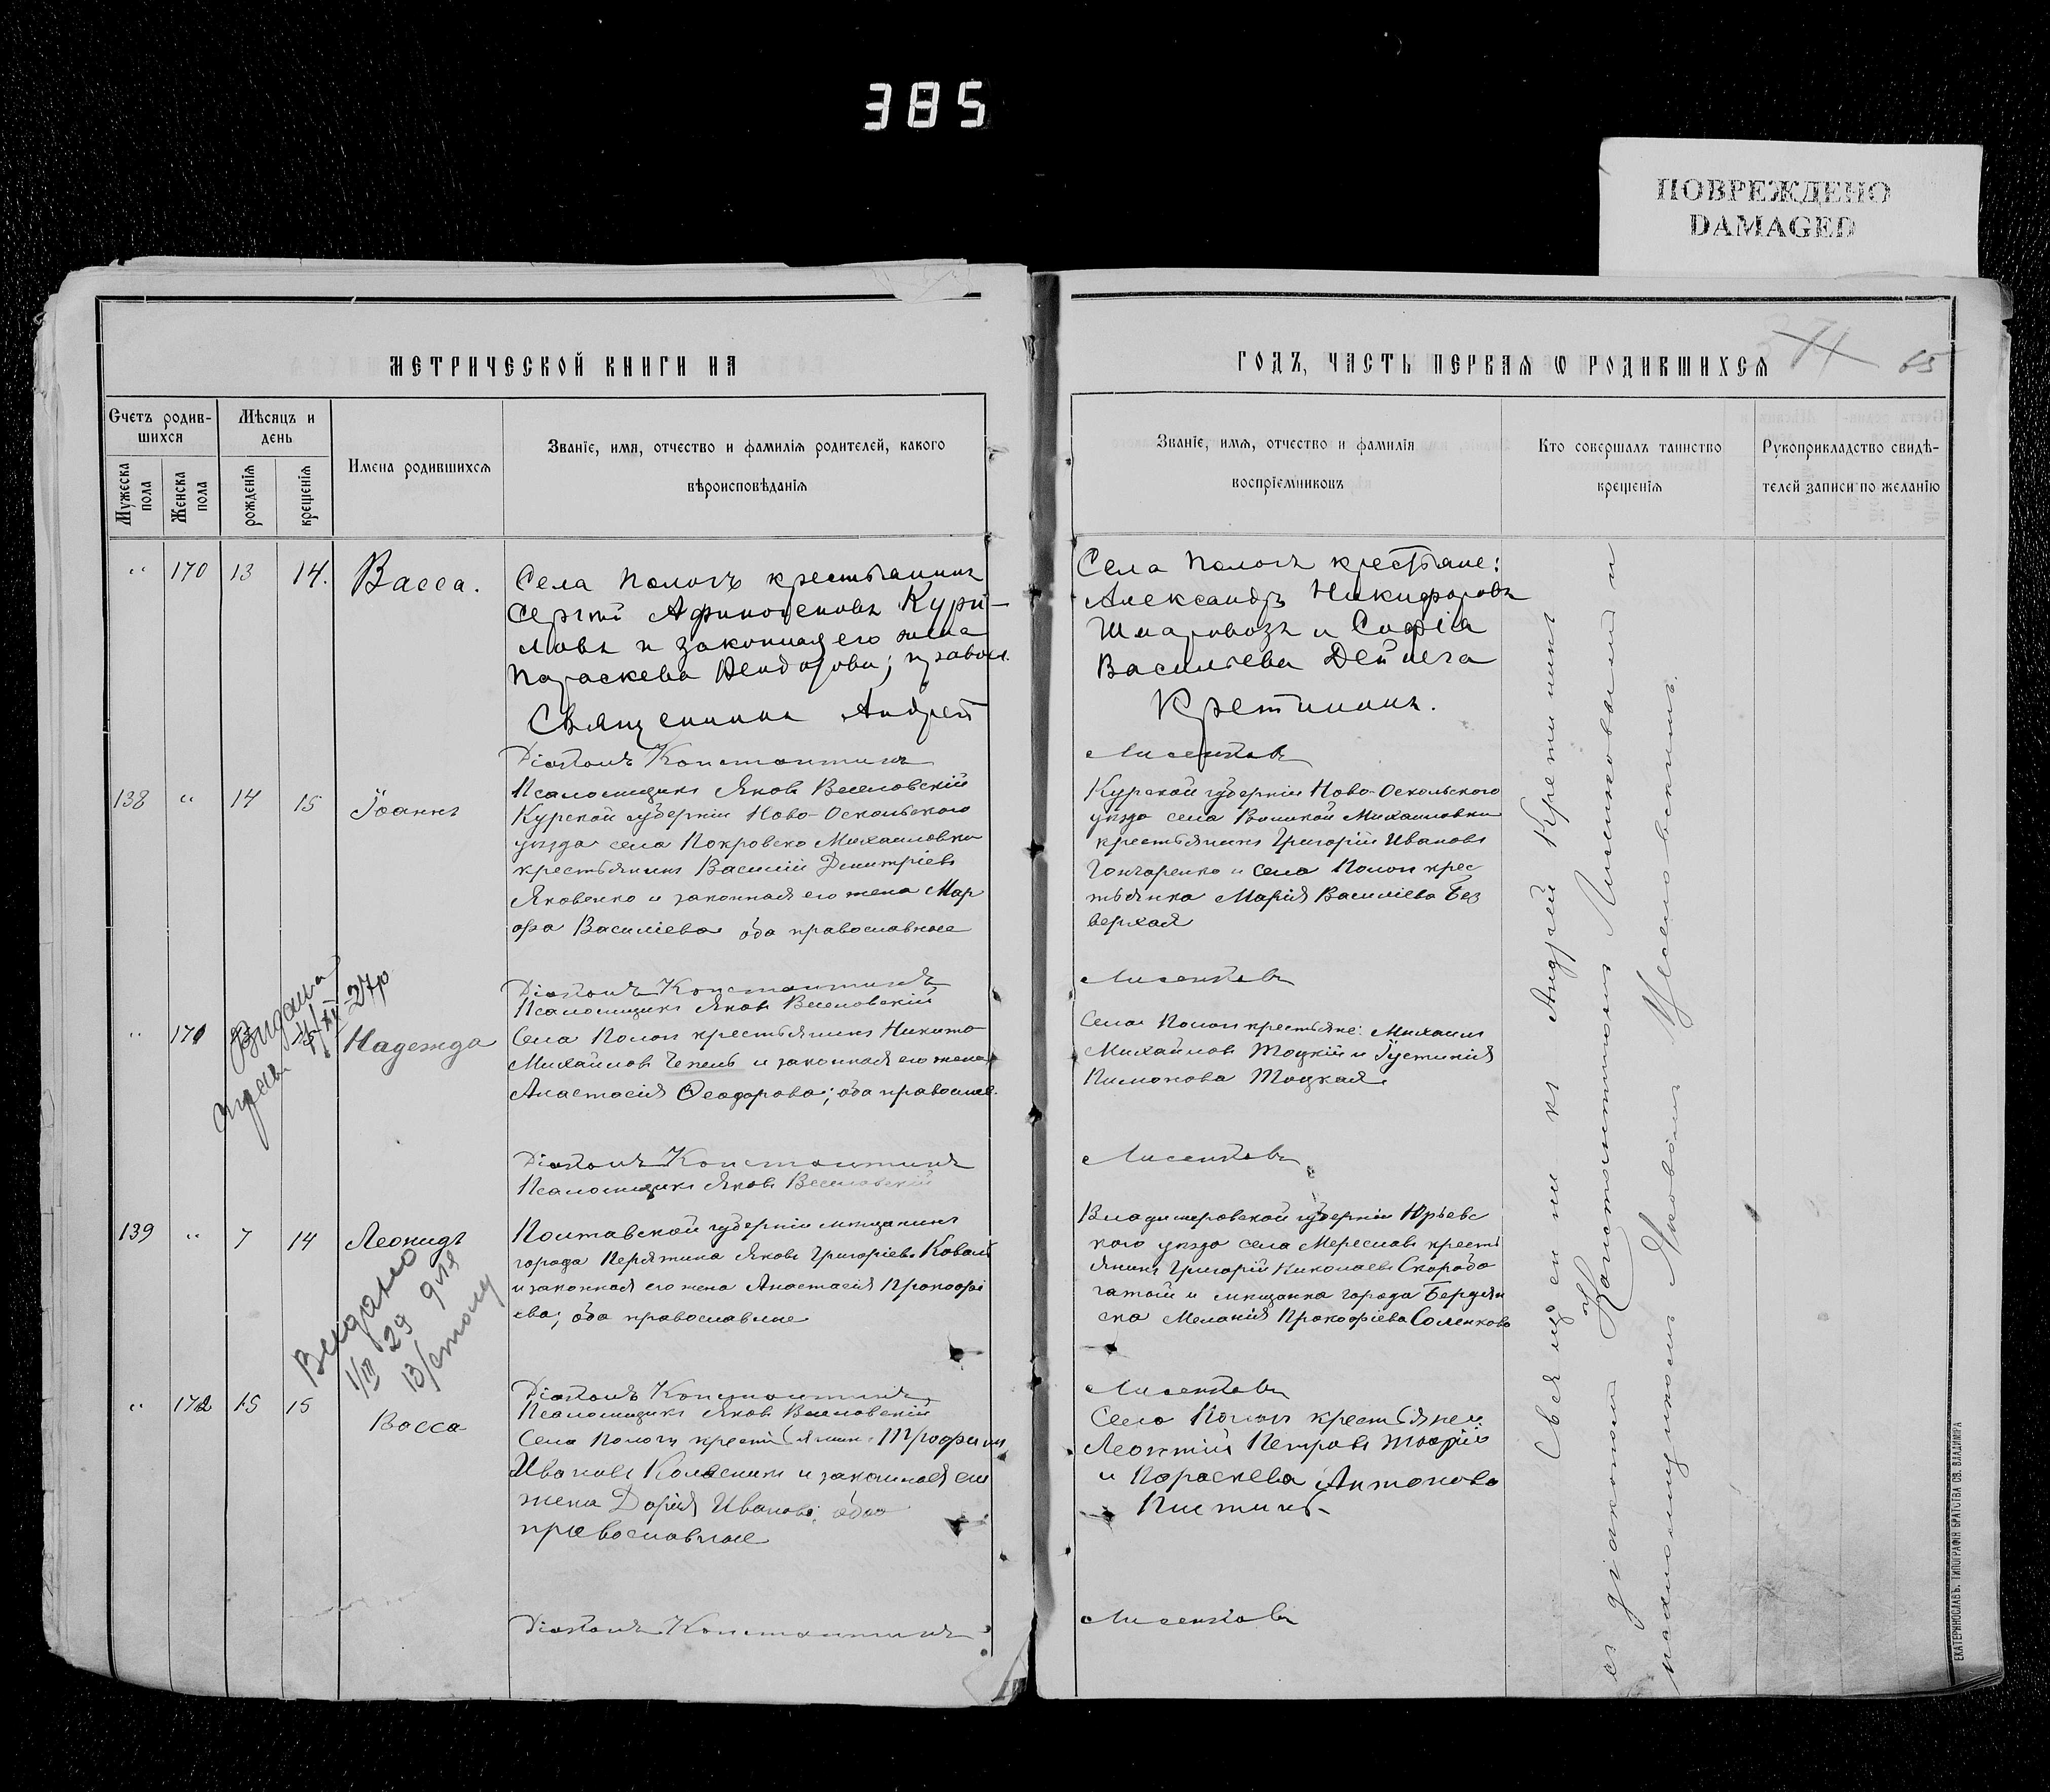 385
ПОВРЕЖДЕНО
DAMAGED
МЕТРИЧЕСКОЙ КНИГИ НА
Счетъ родив-
шихся
Мѣсяцъ и
день
Мужеска
пола
Женска
пола
рожденія
крещенія
Имена родившихся
Званіе, имя, отчество и фамилія родителей, какого
вѣроисповѣданія
" 170 13 14. Васса.
Села Пологъ крестьянинъ
Сергій Афиногеновъ Кури-
ловъ и законная его жена
Параскева Ѳеодорова; правосл.
Священникъ Андрей
Діаконъ Константинъ
Псаломщикъ Яковъ Веселовскій
138 " 14 15 Іоаннъ
Курской губерніи Ново-Оскольского
уѣзда села Покровско Михаиловки
крестьянинъ Василій Димитріевъ
Яковенко и законная его жена Мар
ѳа Василіева оба православные
Діаконъ Константинъ
Псаломщикъ Яковъ Веселовскій
" 171 Надежда
Выдана
27р
Села Пологъ крестьянинъ Никита
Михайловъ Чепель и законная его жена
Анастасія Ѳеодорова; оба православ.
Діаконъ Константинъ
Псаломщикъ Яковъ Веселовскій
139 " 7 14 Леонидъ
Полтавской губерніи мѣщанинъ
города Пирятина Яковъ Григоріевъ Коваль
и законная его жена Анастасія Прокофі
ева; оба православные
Выдано
1/III 29 для
13/столу
Діаконъ Константинъ
Псаломщикъ Яковъ Веселовскій
" 172 15 15 Васса
Села Пологи крестьянин Трофимъ
Ивановъ Колесникъ и законная его
жена Дарія Иванова; оба
православные
Діаконъ Константинъ
ГОДЪ, ЧАСТЬ ПЕРВАЯ Ѡ РОДИВШИХСЯ
71 65
Званіе, имя, отчество и фамилія
воспріемниковъ
Кто совершалъ таинство
крещенія
Рукоприкладство свидѣ-
телей записи по желанію
Села Пологъ крестьяне:
Александръ Никифоровъ
Шмаровозъ и Софія
Васильева Дейнега
Кретининъ.
Лисенковъ
Курской губерніи Ново-Оскольского
уѣзда села Великой Михаиловки
крестьянинъ Григорій Ивановъ
Гончаренко и села Пологъ крес
тьянка Марія Василіева Без
верхая
Лисенковъ
Села Пологъ крестьяне: Михаилъ
Михайловъ Тоцкій и Іустинія
Пимонова Тоцкая
Лисенковъ
Владимировской губерніи Юрьевс
кого уѣзда села Мереслав кресть
янинъ Григорій Николаевъ Скоробо
гатый и мѣщанка города Бердян
ска Меланія Прокофіева Соленкова
Лисенковъ
Село Пологъ крестьяне:
Леонтій Петровъ Тоцкій
и Параскева Антонова
Лисенковъ
Священникъ Андрей Кретининъ
съ діакономъ Константиномъ Лисенковымъ и
псаломщикомъ Яковомъ Веселовскимъ.
ЕКАТЕРИНОСЛАВЪ. ТИПОГРАФІЯ БРАТСТВА СВ. ВЛАДИМІРА